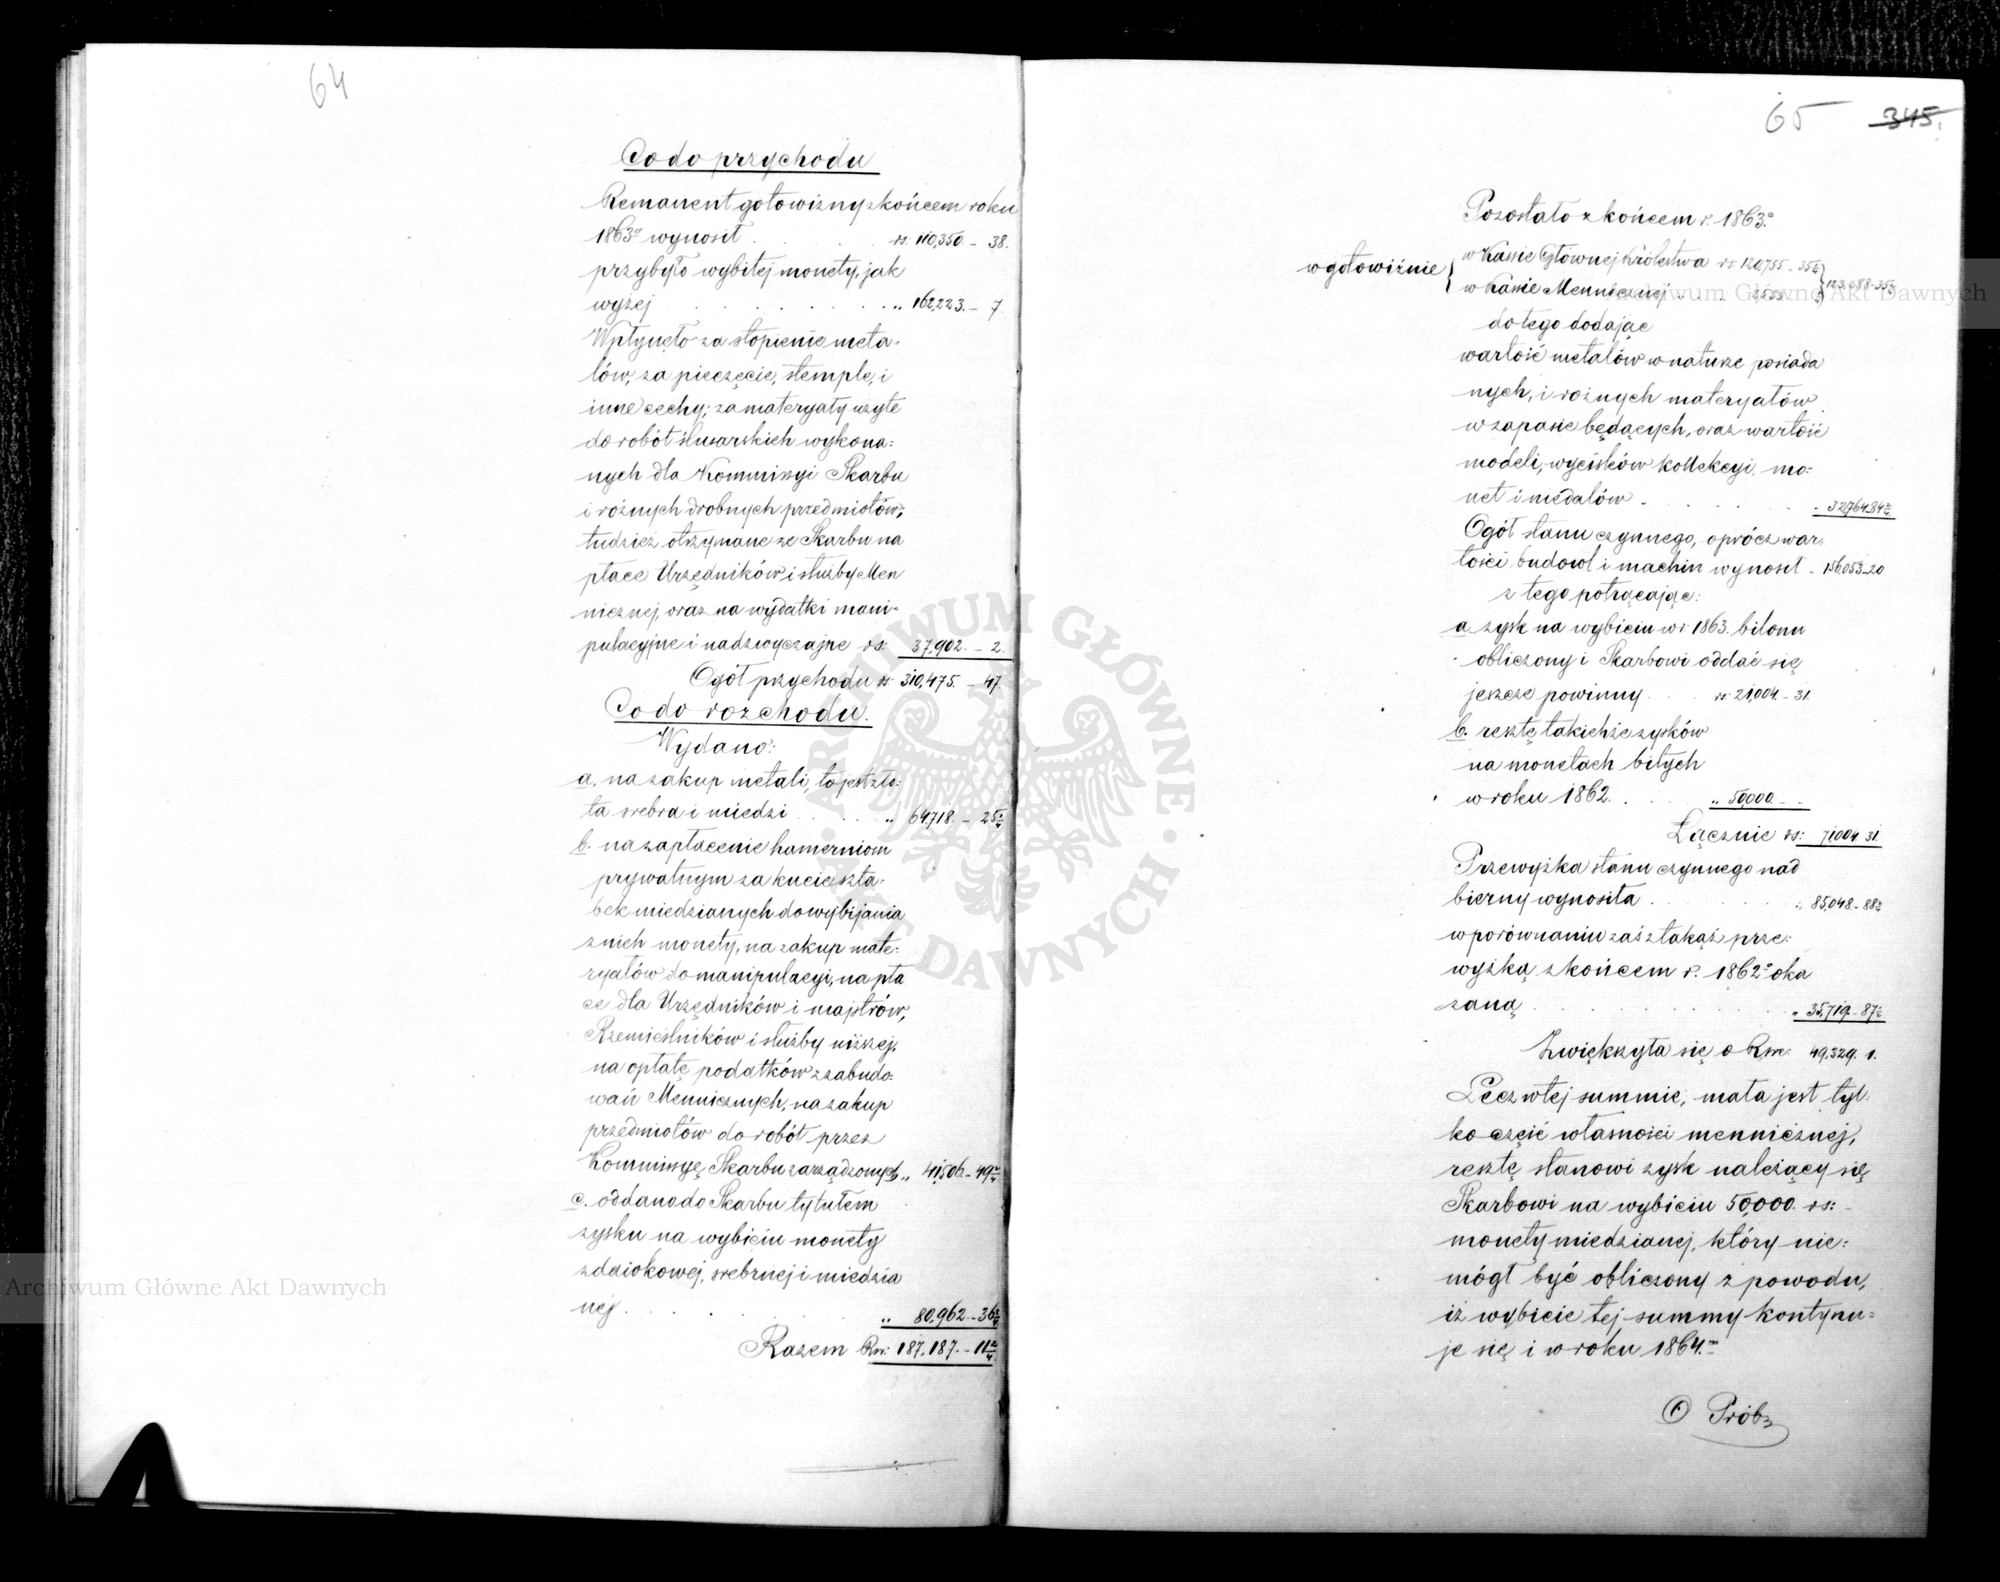 64
Co do przychodu
Remanent gotowizny z końcem roku
1863o wynosił . . . rs. 110,350 - 38.
przybyło wybitej monety, jak
wyżej . . . . . . . „ 162,223. - 7
Wpłynęło za stopienie meta-
lów, za pieczęcie, stemple, i
inne cechy; za materyały użyte
do robót ślusarskich wykona:
nych dla Kommissyi Skarbu
i różnych drobnych przedmiotów;
tudzież otrzymane ze Skarbu na
płace Urzędników i służby Men
nicznej, oraz na wydatki mani-
pulacyjne i nadzwyczajne rs: 37,902. - 2.
Ogół przychodu rs: 310,475. - 47.
Co do rozchodu.
Wydano:
a. na zakup metali, to jest zło:
ta srebra i miedzi . . . „ 64,718. - 25
b. na zapłacenie hamerniom
prywatnym za kucie szta-
bek miedzianych do wybijania
z nich monety, na zakup mate:
ryałów do manipulacyi, na pła
ce dla Urzędników i majstrów,
Rzemieślników i służby niższej,
na opłatę podatków z zabudo:
wań Mennicznych, na zakup
przedmiotów do robót przez
Kommissyę Skarbu zarządzonych „ 41,506 - 49
c. oddano do Skarbu tytułem
zysku na wybiciu monety
zdawkowej, srebrnej i miedzia
nej . . . . „ 80,962 - 36
Razem Rsr: 187,187. - 11
65 345.
Pozostało z końcem r. 1863o
w gotowiźnie { w Kassie Głównej Królestwa rs 120,755 - 35
w Kassie Mennicznej . . } 123,288-35
do tego dodając
wartość metalów w naturze posiada
nych, i rożnych materyałów
w zapasie będących, oraz wartość
modeli, wycisków kollekcyi, mo:
net i medalów . . . . . . 32,764.84
Ogół stanu czynnego, oprócz war:
tości budowl i machin wynosił . 156,053-20
z tego potrącając:
a. zysk na wybiciu w r. 1863. bilonu
obliczony i Skarbowi oddać się
jeszcze powinny . . rs: 21,004 - 31.
b. resztę takichże zysków
na monetach bitych
w roku 1862. . . . „ 50,000. - .
Łącznie rs: 71004. 31.
Przewyżka stanu czynnego nad
bierny wynosiła . . . . . „ 85,048 - 88
w porównaniu zaś z takąż prze:
wyżką z końcem r. 1862o oka
zaną . . . . . . . „ 35,719 - 87
Zwiększyła się o Rsr: 49,329. 1.
Lecz w tej summie, mała jest tyl:
ko część własności mennicznej,
resztę stanowi zysk należący się
Skarbowi na wybiciu 50,000. rs: -
monety miedzianej, który nie:
mógł być obliczony z powodu,
iż wybicie tej summy kontynu=
je się i w roku 1864.m
Archiwum Główne Akt Dawnych
Archiwum Główne Akt Dawnych
ARCHIWUM GŁÓWNE AKT DAWNYCH